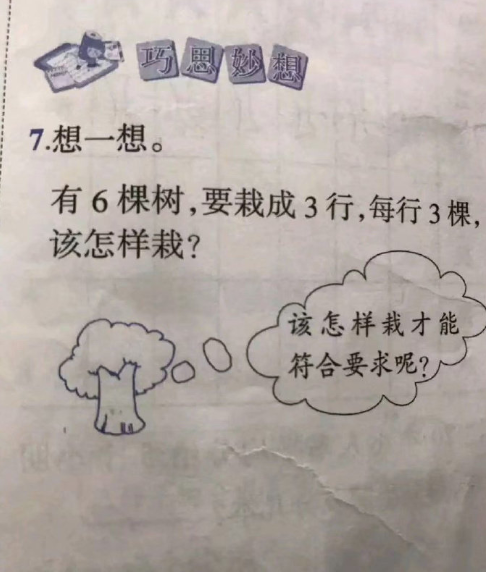 巧思妙想
7.想一想。
有6棵树,要栽成3行,每行3棵,
该怎样栽?
该怎样栽才能
符合要求呢?